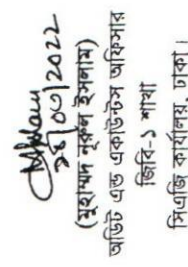 ২৪/০৩/2022
(মুহাম্মদ নূরুল ইসলাম)
অডিট এন্ড একাউন্টস অফিসার
জিবি-১ শাখা
সিএজি কার্যালয়, ঢাকা।